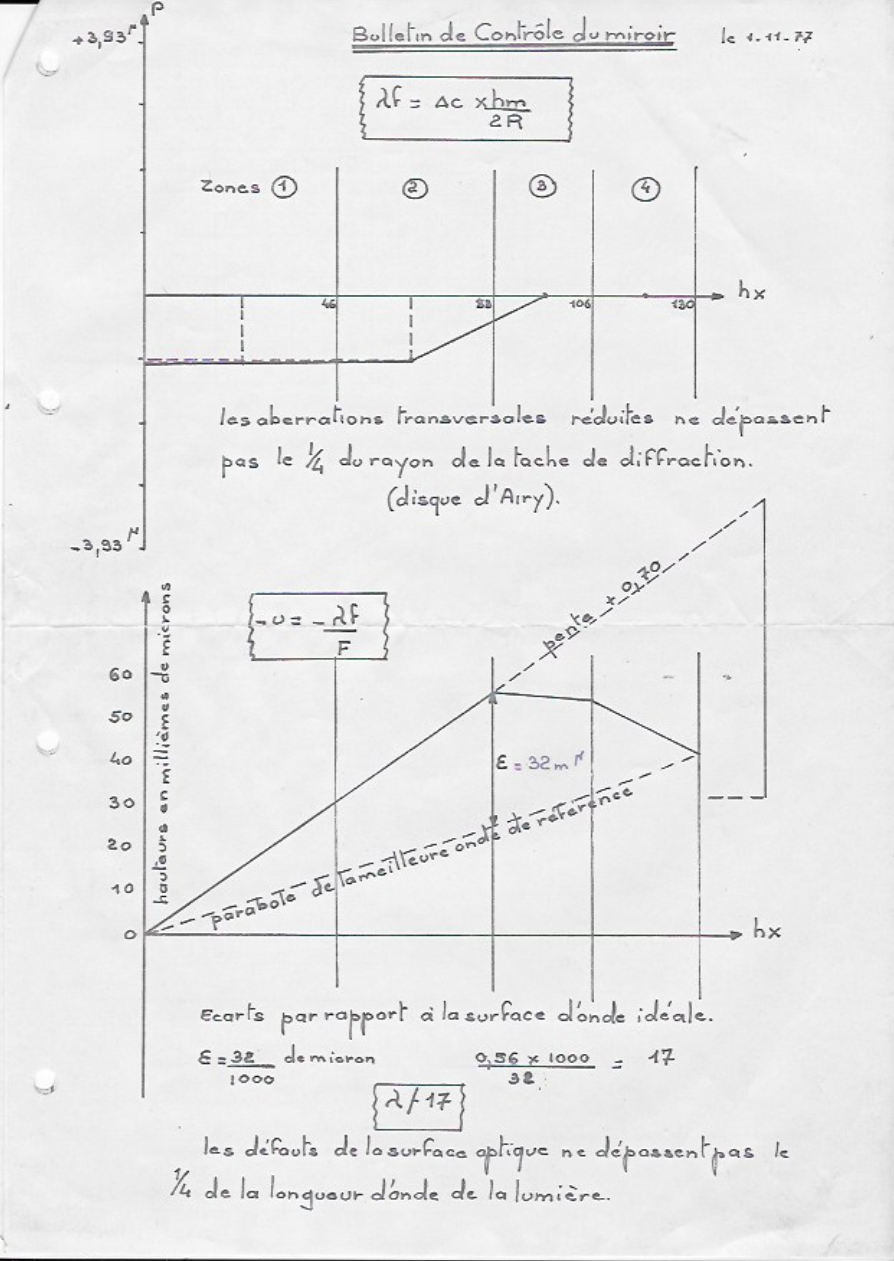 +3,93 μ
ρ
Bulletin de Contrôle du miroir le 1-11-77
λf = Δc x hm / 2R
Zones ① ② ③ ④
46 88 106 130 hx
les aberrations transversales réduites ne dépassent
pas le 1/4 du rayon de la tache de diffraction.
(disque d'Airy).
-3,93 μ
hauteurs en millièmes de microns
-υ = - λf / F
pente + 0,70
60
50
40
30
20
10
0
ε = 32 m μ
parabole de la meilleure onde de référence
hx
Ecarts par rapport à la surface d'onde idéale.
ε = 32 / 1000 de micron 0,56 x 1000 / 32 = 17
λ/17
les défauts de la surface optique ne dépassent pas le
1/4 de la longueur d'onde de la lumière.